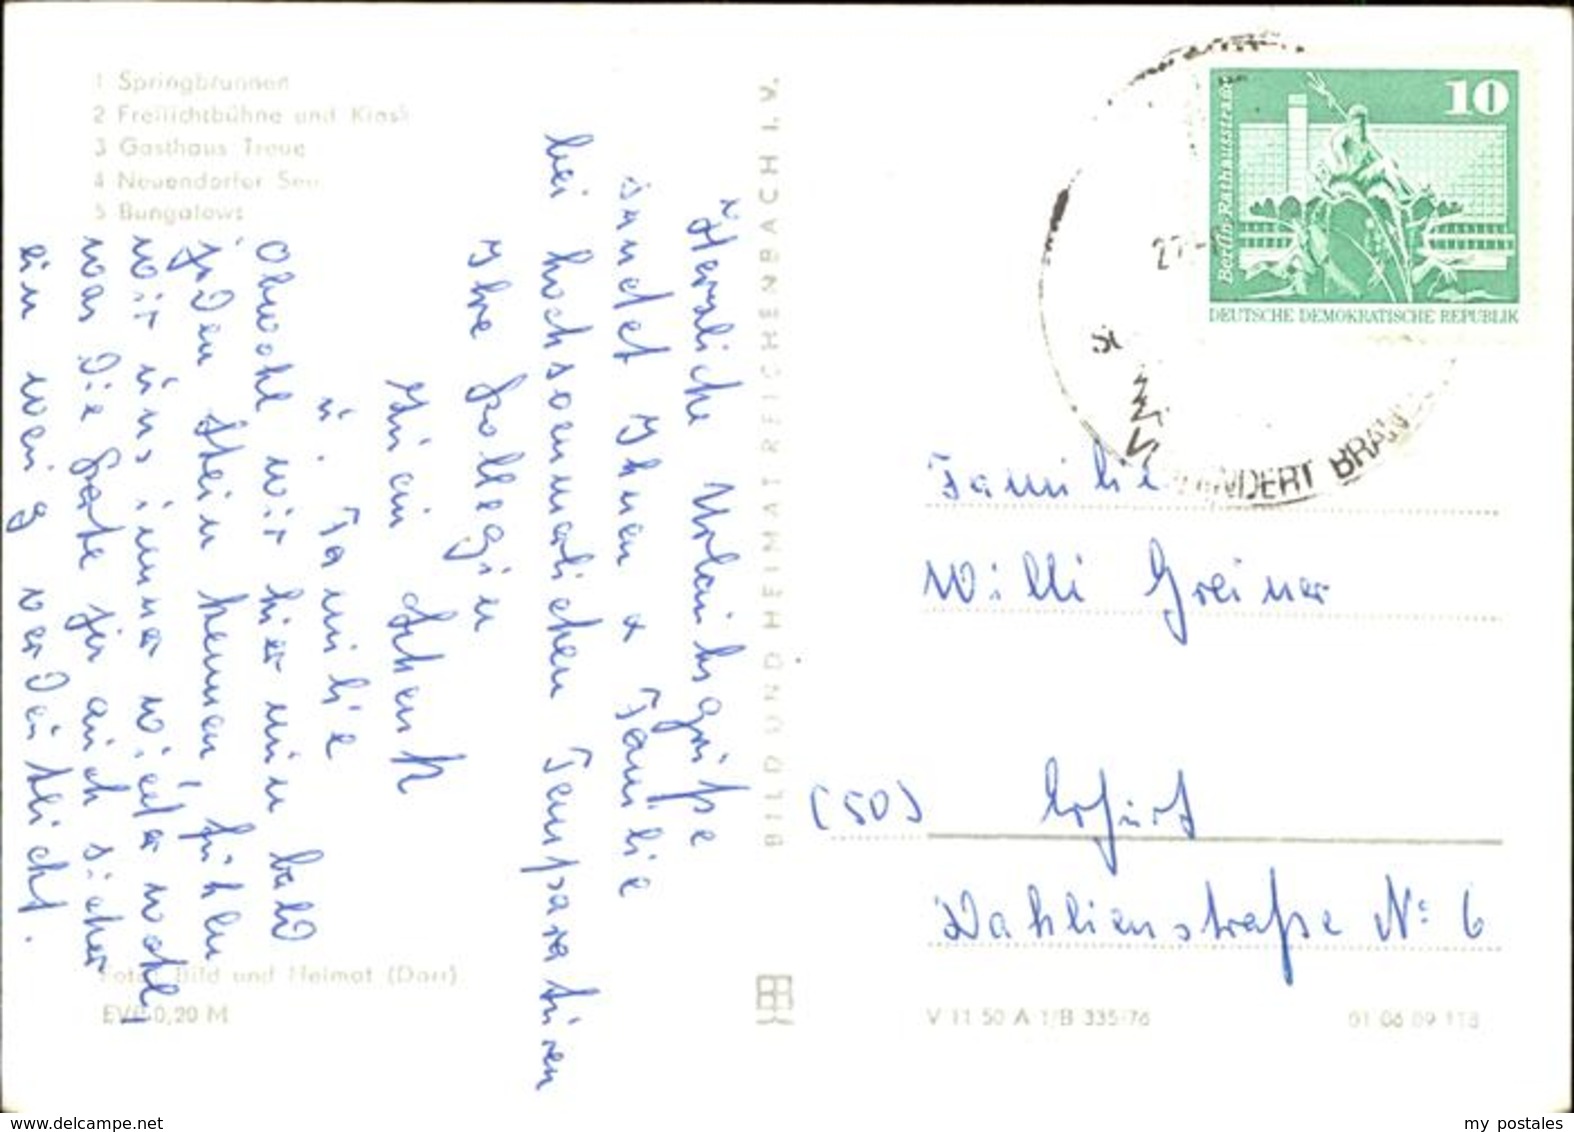 1 Springbrunnen
2 Freilichtbühne und Kiosk
3 Gasthaus Treue
4 Neuendorfer See
5 Bungalows
Herzliche Urlaubsgrüße
sendet Ihnen u. Familie
bei hochsommerlichen Temperatüren
Ihre Kollegin
Schenk
ü. Familie
Obwohl wir hier nün bald
jeden Stein kennen, fühlen
wir üns immer wieder wohl,
was die Karte für aüch sicher
ein wenig verdeütlicht.
Foto: Bild und Heimat (Darr)
EVP 0,20 M
BILD UND HEIMAT REICHENBACH I. V.
V 11 50 A 1/B 335/76
01 06 09 118
10
Berlin-Rathausstraße
DEUTSCHE DEMOKRATISCHE REPUBLIK
27.
Familie
Willi Greiner
(50) Erfürt
Dahlienstraße No 6
www.delcampe.net
my postales